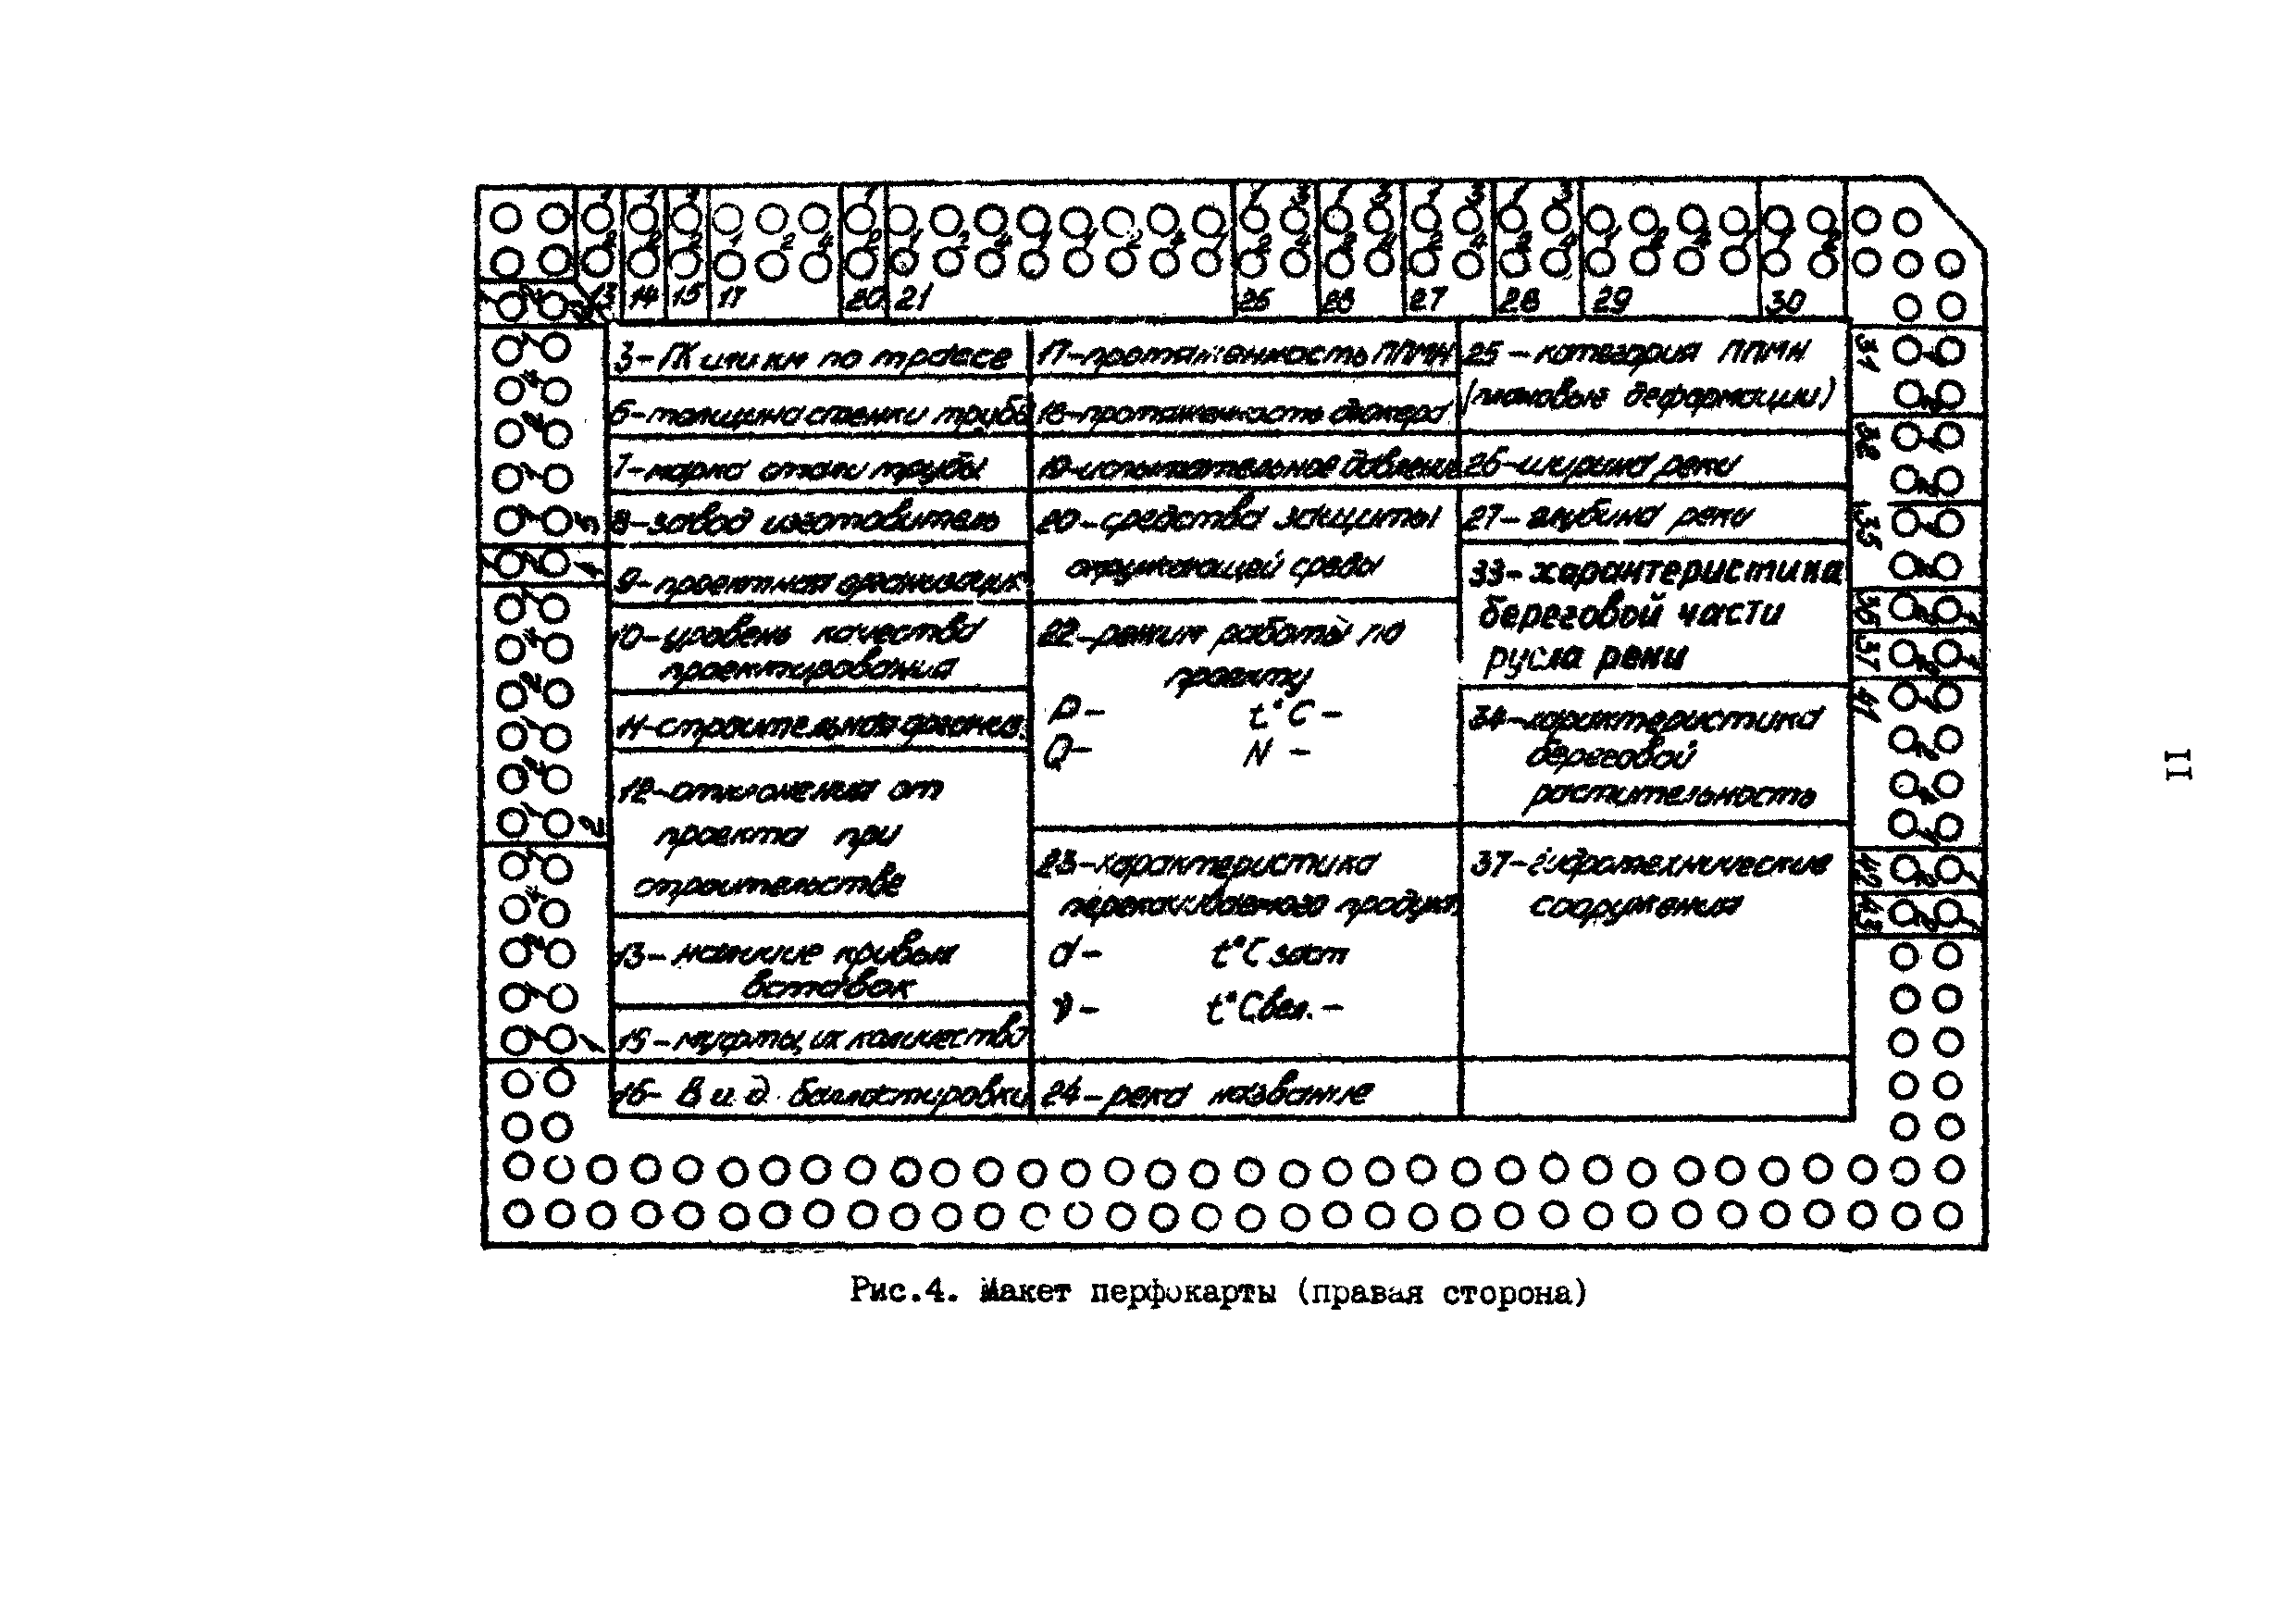 13 14 15 17 20 21 25 26 27 28 29 30
3- ПК или км по трассе
6- толщина стенки трубы
7- марка стали трубы
8- завод изготовитель
9- проектная организация
10- уровень качества
проектирования
11- строительная организ.
12- отклонения от
проекта при
строительстве
13- наличие кривых
вставок
15- муфты, их количество
16- Вид балластировки
17- протяженность ППМН
18- протяженность дюкера
19- испытательное давление
20- средства защиты
окружающей среды
22- режим работы по
проекту
P- t°C -
Q- N -
23- характеристика
перекачиваемого продукта
d- t°C заст
ν- t°Cвсп. -
24- река название
25 - категория ППМН
(плановые деформации)
26- ширина реки
27- глубина реки
33- характеристика
береговой части
русла реки
34- характеристика
береговой
растительность
37- гидротехнические
сооружения
5
4
2
1
31
32
35
36
37
41
42
43
II
Рис.4. Макет перфокарты (правая сторона)